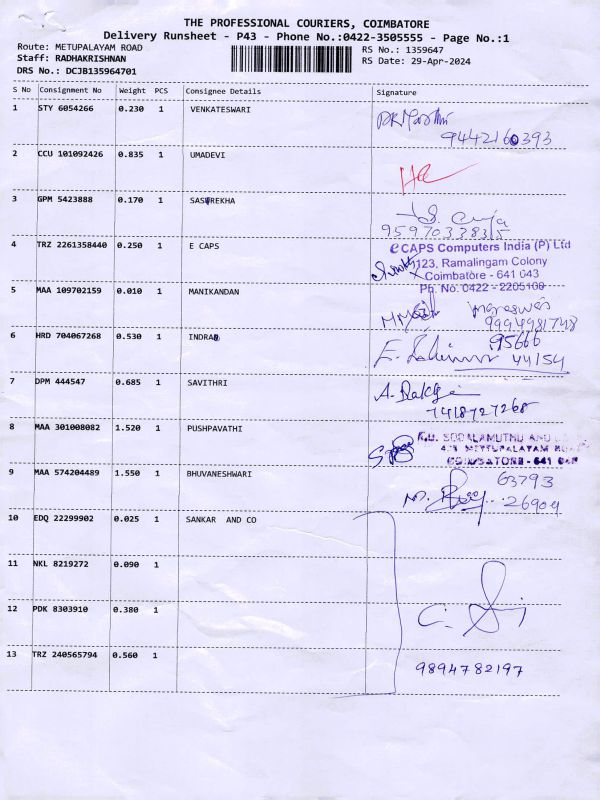 THE PROFESSIONAL COURIERS, COIMBATORE
Delivery Runsheet - P43 - Phone No.:0422-3505555 - Page No.:1
Route: METUPALAYAM ROAD
RS No.: 1359647
Staff: RADHAKRISHNAN
RS Date: 29-Apr-2024
DRS No.: DCJB135964701
S No Consignment No Weight PCS Consignee Details Signature
1 STY 6054266 0.230 1 VENKATESWARI
9442160393
2 CCU 101092426 0.835 1 UMADEVI
3 GPM 5423888 0.170 1 SASUREKHA
9597033835
4 TRZ 2261358440 0.250 1 E CAPS
eCAPS Computers India (P) Ltd
123, Ramalingam Colony
Coimbatore - 641 043
Ph. No. 0422 - 2205100
5 MAA 109702159 0.010 1 MANIKANDAN
9994981748
6 HRD 704067268 0.530 1 INDRA
95666
44154
7 DPM 444547 0.685 1 SAVITHRI
7418727268
8 MAA 301008082 1.520 1 PUSHPAVATHI
METTUPALAYAM
COIMBATORE - 641
9 MAA 574204489 1.550 1 BHUVANESHWARI
63793
26909
10 EDQ 22299902 0.025 1 SANKAR AND CO
11 NKL 8219272 0.090 1
12 PDK 8303910 0.380 1
13 TRZ 240565794 0.560 1
9894782197